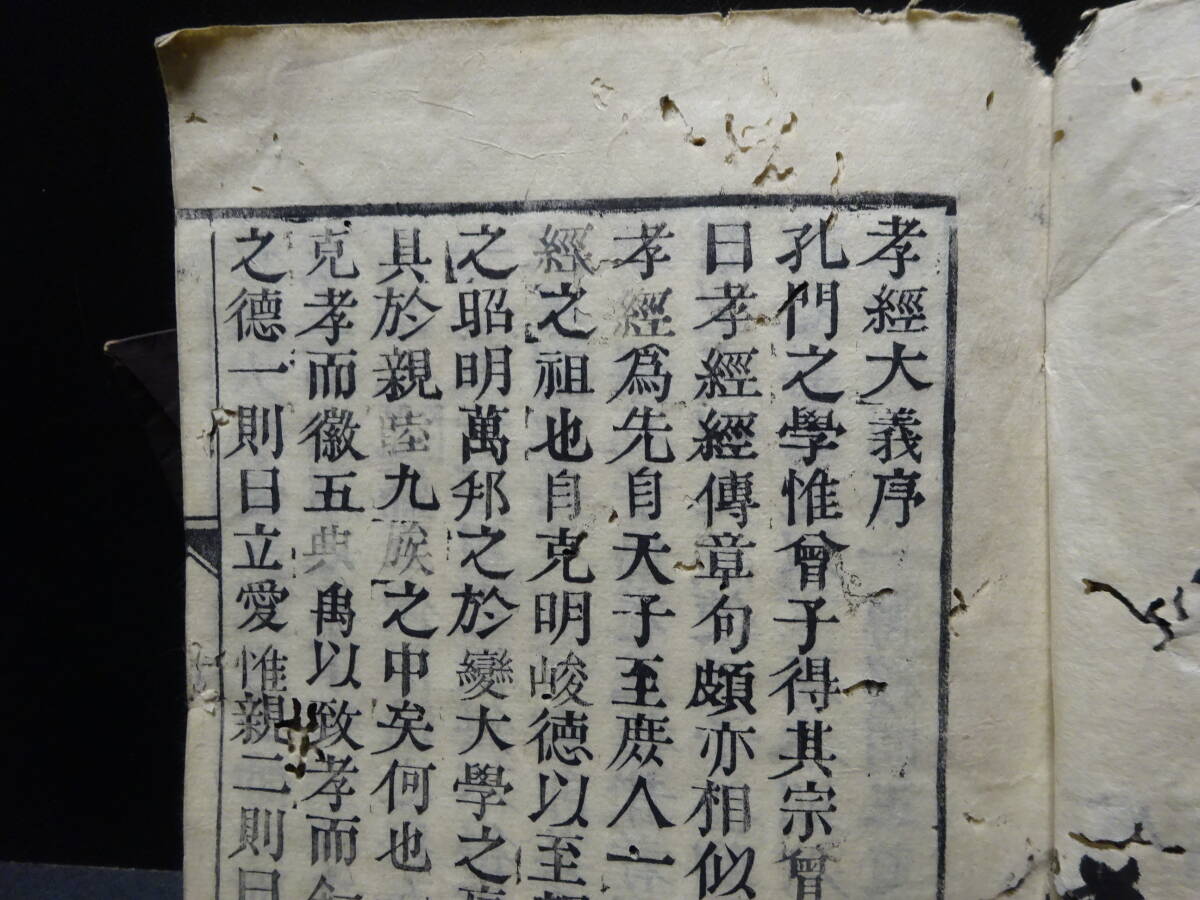 孝經大義序
孔門之學惟曾子得其宗曾
曰孝經經傳章句頗亦相似
孝經爲先自天子至庶人一
經之祖也自克明峻德以至
之昭明萬邦之於變大學之
具於親睦九族之中矣何也
克孝而徽五典禹以致孝而
之德一則曰立愛惟親二則曰